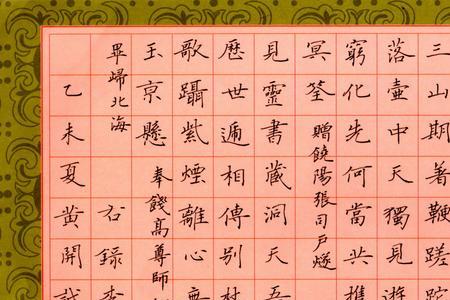 三山期著鞭蹉跎
落壺中天獨見遊
窮化先何當共攜
冥筌 贈饒陽張司戶燧
見靈書藏洞天吾
歷世遞相傳別杖
歌躡紫煙離心
玉京懸 奉餞高尊師
畢歸北海 右錄李
乙未夏黃開